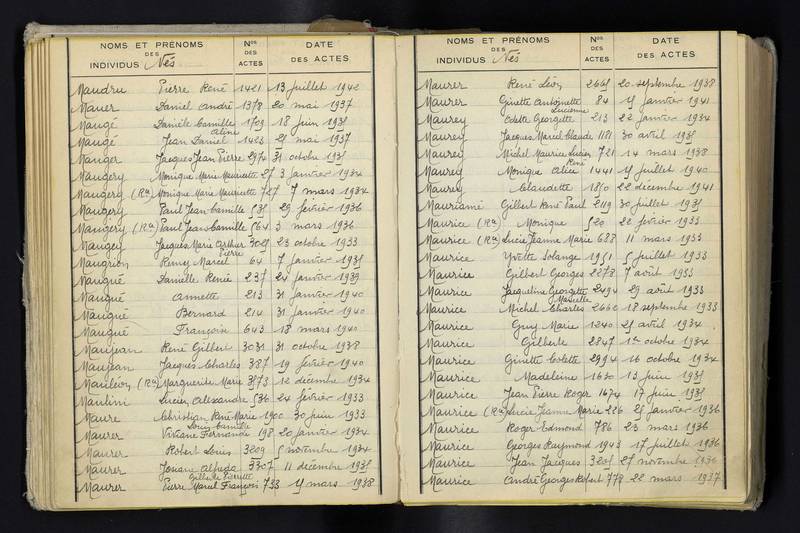 NOMS ET PRÉNOMS
DES
INDIVIDUS Nés
Nos
DES
ACTES
DATE
DES ACTES
Maudru Pierre René 1421 13 juillet 1942
Mauer Daniel André 1378 20 mai 1937
Maugé Danièle Camille 1709 18 juin 1935
Aline
Maugé Jean Daniel 1423 25 mai 1937
Mauger Jacques Jean Pierre 2974 31 octobre 1935
Maugery Monique Marie Mauricette 27 3 janvier 1934
Maugery (Ron) Monique Marie Mauricette 727 7 mars 1934
Maugery Paul Jean Camille 535 29 février 1936
Maugery (Ron) Paul Jean Camille 564 3 mars 1936
Maugey Jacques Marie Arthur 3005 23 octobre 1933
Pierre
Maugrion Remy Marcel 64 7 janvier 1935
Maugué Danielle Renée 237 24 janvier 1939
Maugué Annette 213 31 janvier 1940
Maugué Bernard 214 31 janvier 1940
Maugué François 643 18 mars 1940
Maujean René Gilbert 3031 31 octobre 1938
Maujean Jacques Charles 387 19 février 1940
Mauléon (Ron) Marguerite Marie 3573 12 décembre 1934
Maulini Lucien Alexandre 536 24 février 1933
Maure Christian René Marie 1900 30 juin 1933
Louis Camille
Maurer Viviane Fernande 198 20 janvier 1934
Maurer Robert Louis 3209 5 novembre 1934
Maurer Josiane Alfreda 3307 11 décembre 1935
Gilberte Pierrette
Maurer Pierre Marcel François 733 15 mars 1938
NOMS ET PRÉNOMS
DES
INDIVIDUS Nés
Nos
DES
ACTES
DATE
DES ACTES
Maurer René Léon 2665 20 septembre 1938
Maurer Ginette Antoinette 84 15 janvier 1941
Lucienne
Maurey Odette Georgette 213 22 janvier 1934
Maurey Jacques Marcel Claude 1181 30 avril 1935
Maurey Michel Maurice Lucien 721 14 mars 1938
René
Maurey Monique Alice 1441 15 juillet 1940
Maurey Claudette 1850 22 décembre 1941
Mauriamé Gilbert René Paul 2119 30 juillet 1935
Maurice (Ron) Monique 520 22 février 1933
Maurice (Ron) Lucie Jeanne Marie 688 11 mars 1933
Maurice Yvette Solange 1951 5 juillet 1933
Maurice Gilbert Georges 2278 7 août 1933
Maurice Jacqueline Georgette 2494 29 août 1933
Marcelle
Maurice Michel Charles 2660 18 septembre 1933
Maurice Guy Marie 1240 25 avril 1934
Maurice Gilberte 2847 1er octobre 1934
Maurice Ginette Colette 2994 16 octobre 1934
Maurice Madeleine 1630 13 juin 1935
Maurice Jean Pierre Roger 1674 17 juin 1935
Maurice (Ron) Lucie Jeanne Marie 226 25 janvier 1936
Maurice Roger Edmond 786 23 mars 1936
Maurice Georges Raymond 1943 17 juillet 1936
Maurice Jean Jacques 3205 25 novembre 1936
Maurice André Georges Robert 778 22 mars 1937